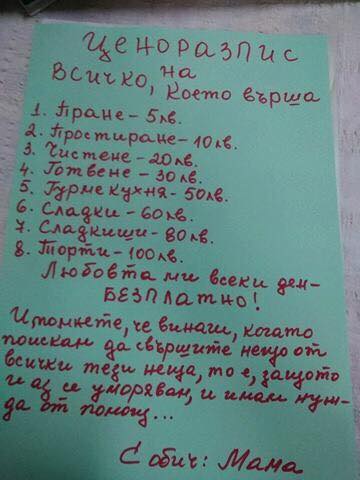 Ценоразпис
на
Всичко, което върша
1. Пране - 5лв.
2. Простиране - 10лв.
3. Чистене - 20лв.
4. Готвене - 30лв.
5. Гурме кухня - 50лв.
6. Сладки - 60лв.
7. Сладкиши - 80лв.
8. Торти - 100лв.
Любовта ми всеки ден -
БЕЗПЛАТНО!
И помнете, че винаги, когато
поискам да свършите нещо от
всички тези неща, то е, защото
и аз се уморявам, и имам нуж-
да от помощ...
С обич: Мама